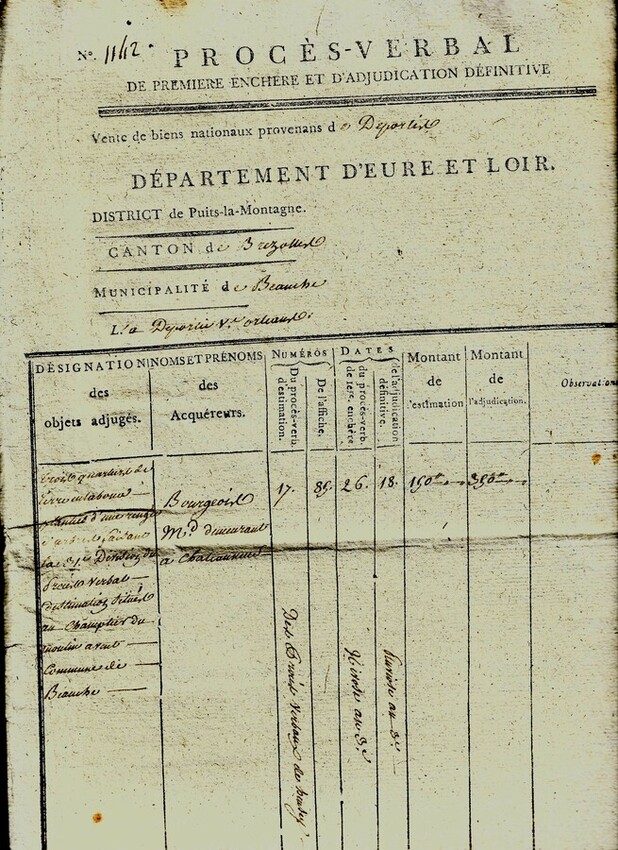 N°. 1142.
PROCÈS-VERBAL
DE PREMIERE ENCHÈRE ET D'ADJUDICATION DÉFINITIVE
Vente de biens nationaux provenans d
DÉPARTEMENT D'EURE ET LOIR.
DISTRICT de Puits-la-Montagne.
CANTON de Brezolles
MUNICIPALITÉ de Beauche
DÉSIGNATION
des
objets adjugés.
NOMS ET PRÉNOMS
des
Acquéreurs.
NUMÉROS
Du procès-verb.
d'estimation.
De l'affiche.
DATES
du procès-verb.
de 1ere. enchère
de l'adjudication
définitive.
Montant
de
l'estimation
Montant
de
l'adjudication.
Observation
trois quartiers de
terre en labour
plantés d'une rangée
d'arbres faisant
la 31e Division du
Procès verbal
destimation située
au Champtier du
moulin avent
Commune de
Beauche
Bourgeois
Md. demeurant
a Chateauneuf
17.
89.
26.
18.
150
350
Des Procès verbaux de
Nivose an 3e.
an 3e.